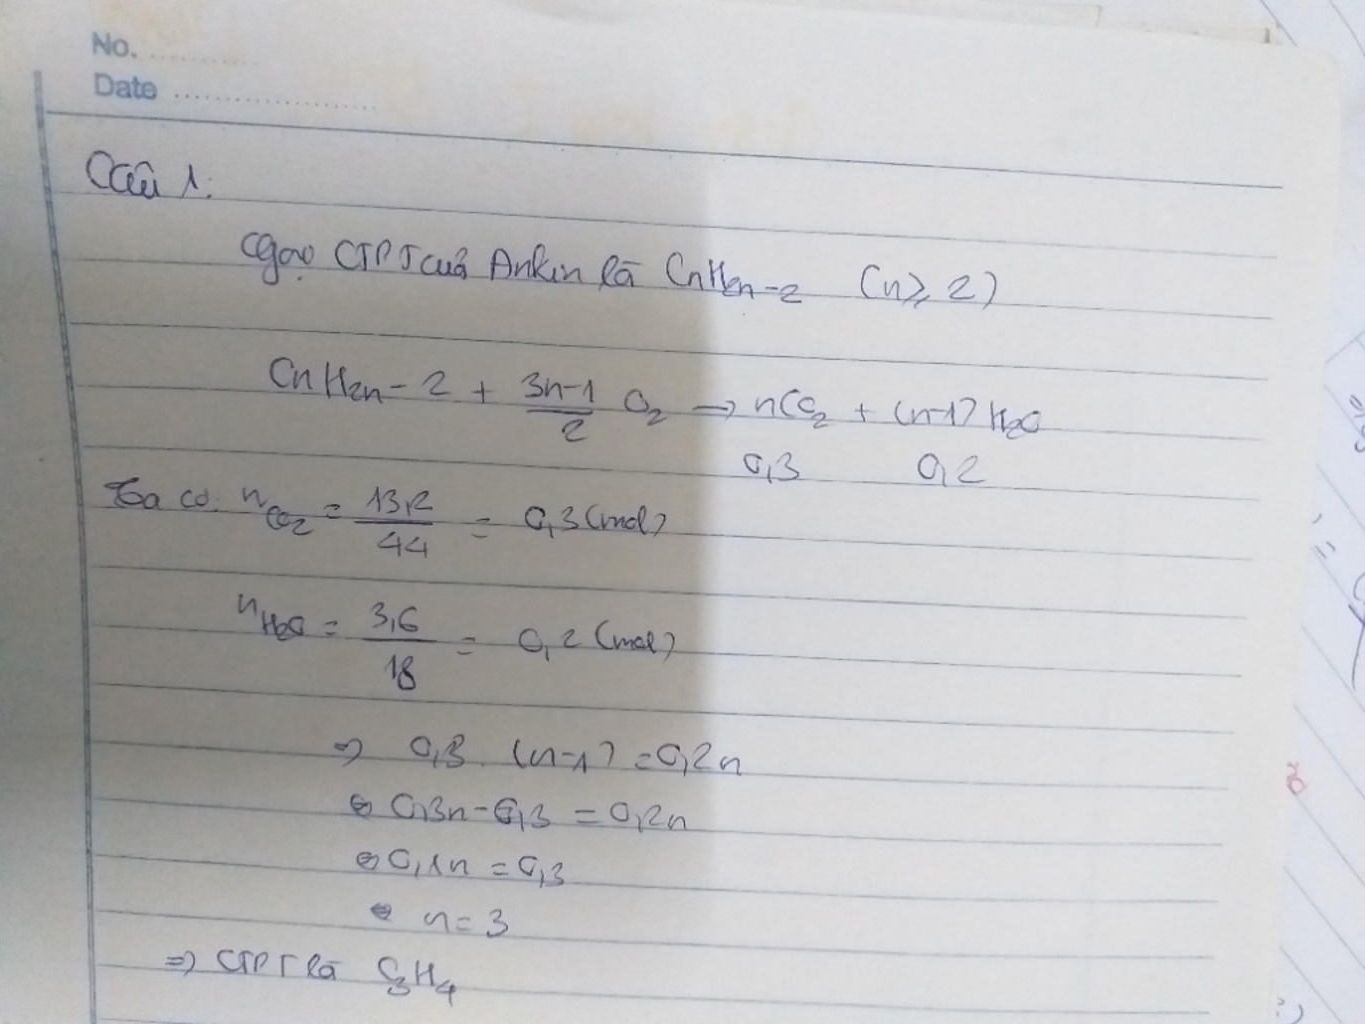 No. ............
Date .....................
Câu 1:
Gọi CTPT của Ankin là CnH2n-2 (n ≥ 2)
CnH2n-2 + 3n-1/2 O2 → nCO2 + (n-1) H2O
0,3 0,2
Ta có: nCO2 = 13,2/44 = 0,3 (mol)
nH2O = 3,6/18 = 0,2 (mol)
⇒ 0,3. (n-1) = 0,2n
⇔ 0,3n - 0,3 = 0,2n
⇔ 0,1n = 0,3
⇔ n = 3
⇒ CTPT là C3H4